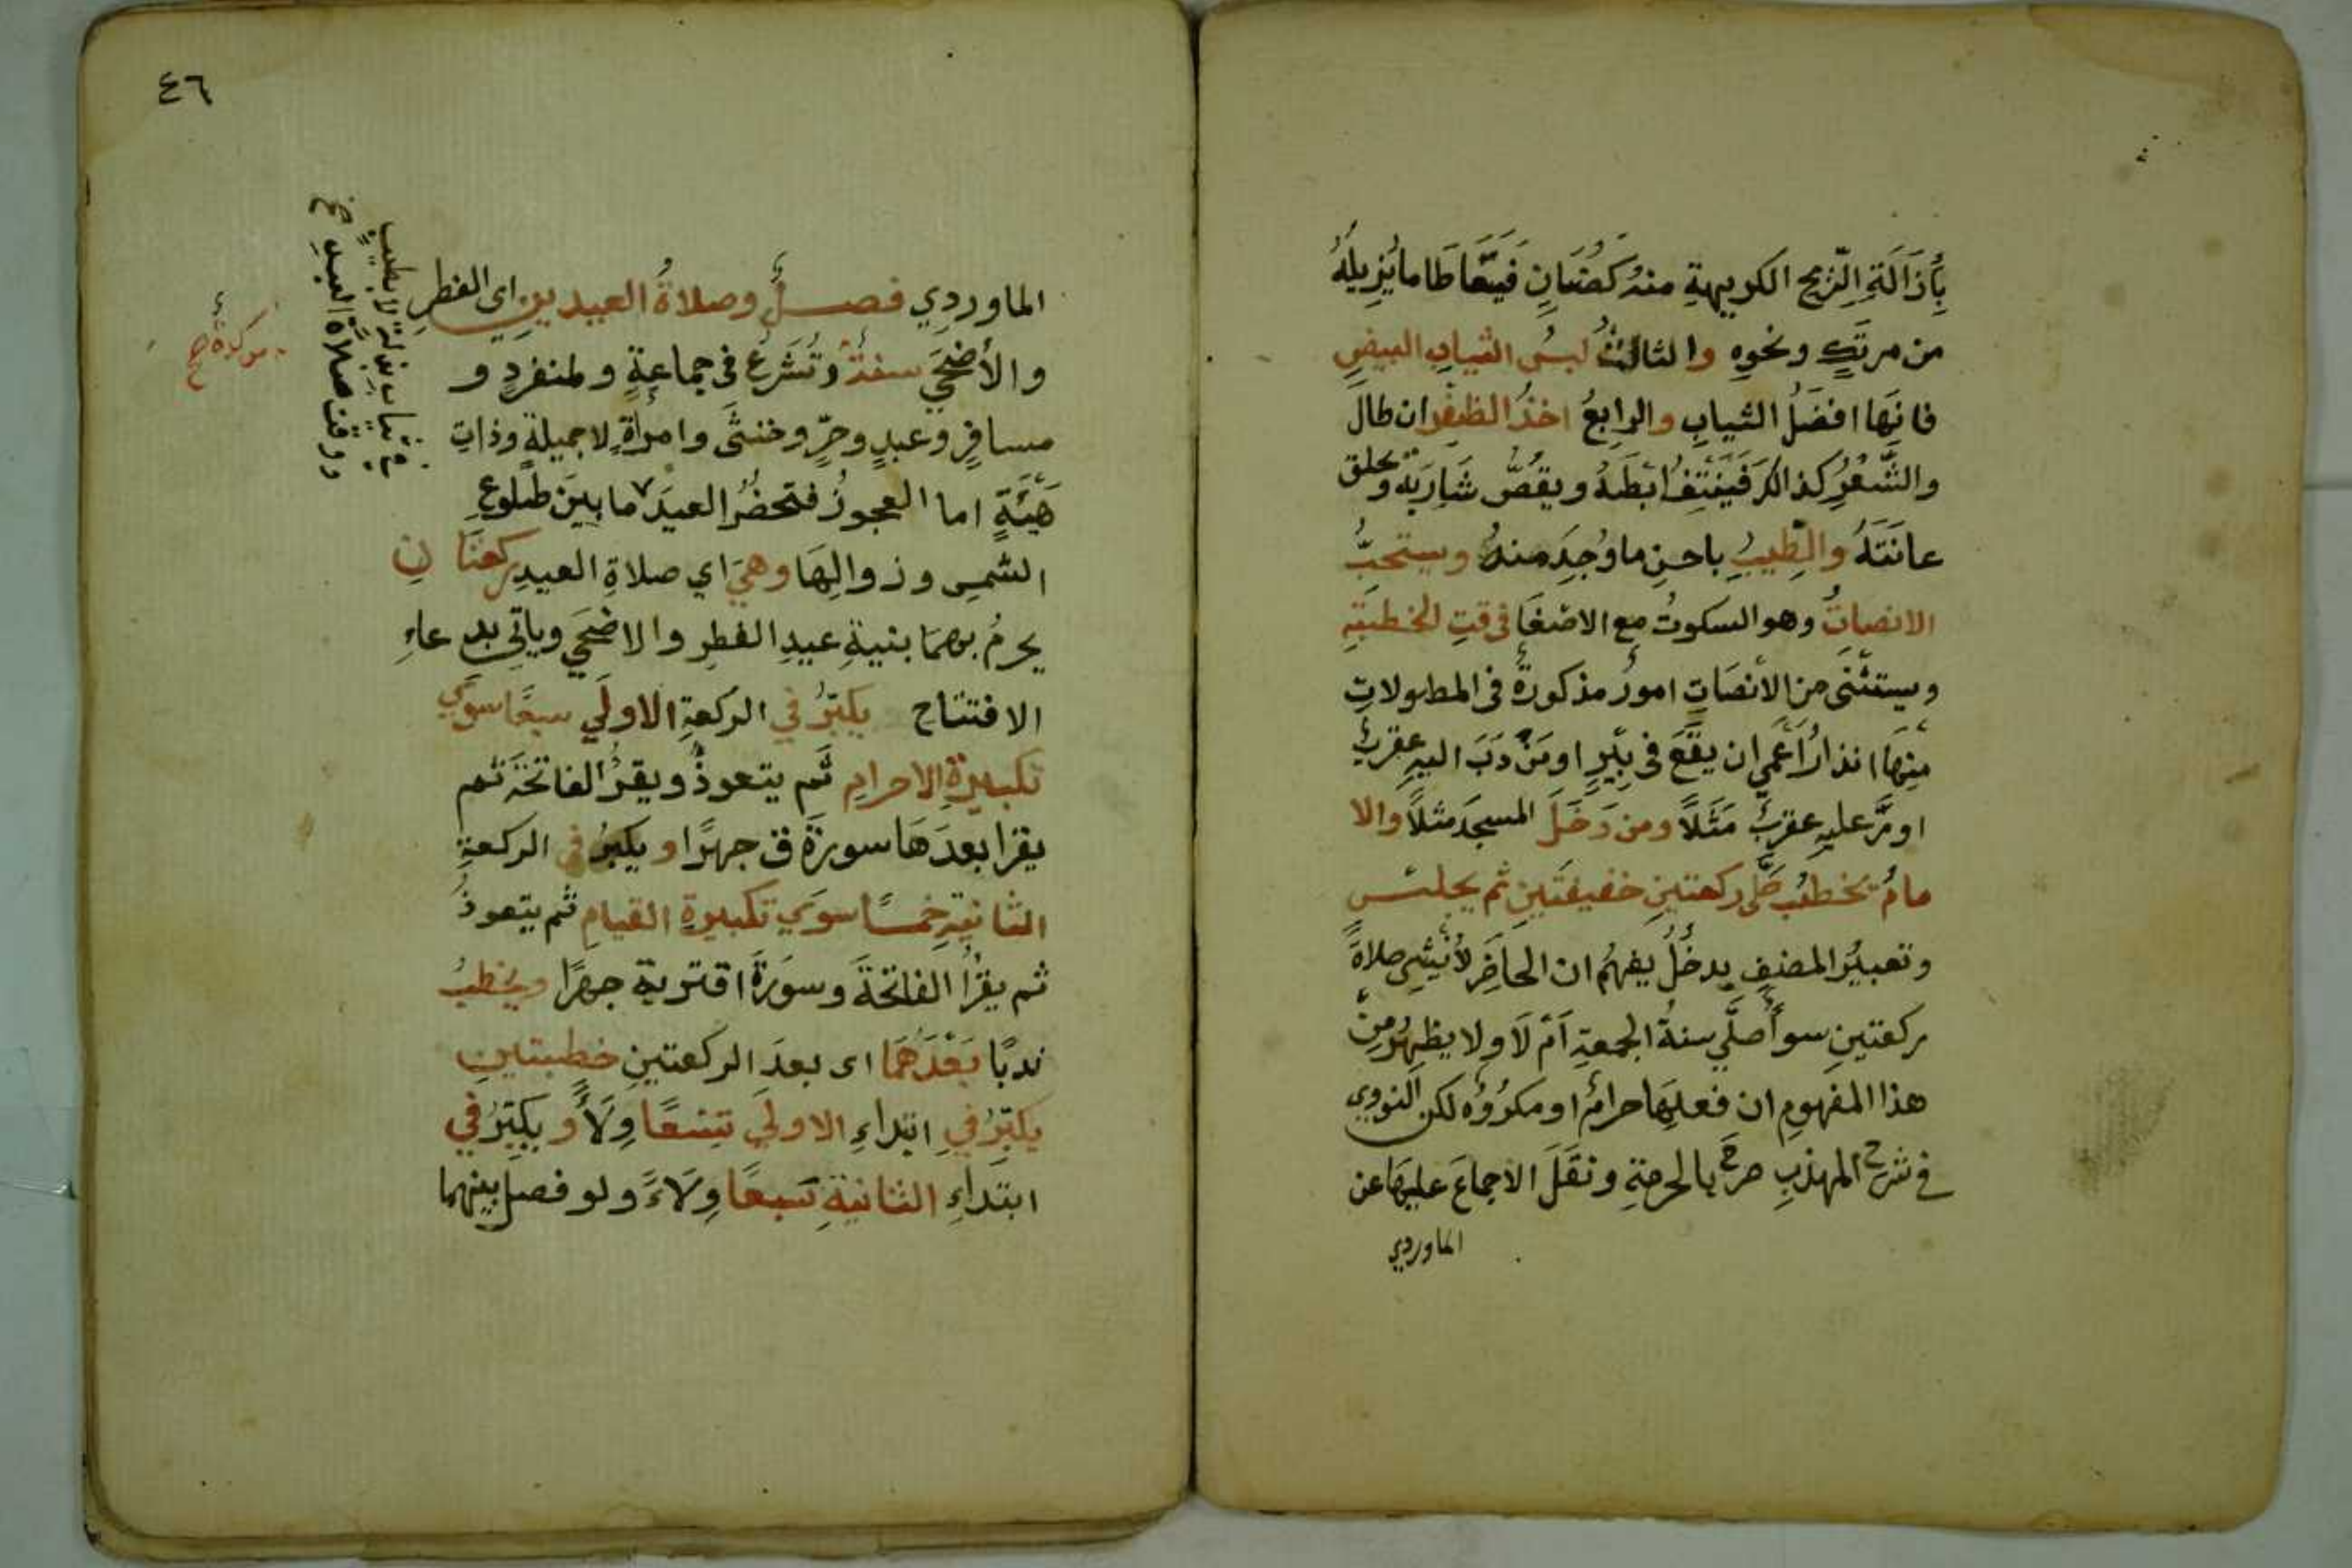 بِأَزَالَةِ الرِّيح الكريهةِ منهُ كَصُنَانٍ فيتَعَاطَا ما يُزِيلُهُ
من مرتَكٍ ونحوِهِ والثالثُ لبسُ الثيابِ البيضِ
فانِهَا افضَلُ الثيابِ والرابعُ اخذُ الظفرِ ان طالَ
والشَّعْرُ كذالكَ فَيَنتِفُ ابَطَهُ ويقُصُّ شَارِبَهُ ويحلق
عانَتَهُ والطِّيبُ باحسنِ ما وُجِدَ منهُ ويستحبُّ
الانصاتُ وهو السكوتُ مع الاصْغَا في وقتِ الخطبَةِ
ويستثنى من الأنصَاتِ امورٌ مذكورةٌ في المطولاتِ
مِنهَا انذارُ أَعْمى ان يقَعَ في بِئرٍ او مَنْ دَبَّ اليهِ عقربٌ
او مَرَّ عليهِ عقربٌ مَثَلًا ومن دَخَلَ المسجدَ مثلًا والا
مامُ يخطبُ صَلَّى ركعتينِ خفيفتَينِ ثم يجلسُ
وتعبيرُ المصنفِ بدخُلُ يفهِمُ ان الحاضِرَ لا يُنشِئ صلاةَ
ركعتينِ سوأً صلَّي سنةَ الجمعةِ اَمْ لَا ولا يظهِرُ مِن
هذا المفهومِ ان فعلِهَا حرامٌ او مكرُوُه لكن النووي
في شرح المهذبِ صرحَ بالحرمةِ ونقَلَ الاجماعَ عليهَا عن
الماوردي
٤٦
الماوردي فصلٌ وصلاةُ العيدينِ اي الفطرِ
والأضحَي سنةٌ وتُشرَعُ في جماعةٍ ولمنفردٍ و
مسافرٍ وعبدٍ وحرٍّ وخنثَى وامرأةٍ لا جميلةٍ وذاتِ
هَيْئَةٍ اما العجوزُ فتحضرُ العيدَ ما بينَ طلوعِ
الشمسِ وزوالِهَا وهيَ اي صلاةِ العيدِ ركعتَانِ
يحرمُ بهمَا بنيةِ عيدِ الفطرِ والاضحَي وياتي بدعاءِ
الافتتاح يكبّرُ في الركعةِ الاولَي سبعًا سوَي
تكبيرةِ الاحرامِ ثم يتعوذُ ويقرُ الفاتحَةَ ثم
يقرا بعدَهَا سورةَ ق جهرًا ويكبرُ في الركعةِ
الثانيةِ خمسًا سوَي تكبيرةِ القيامِ ثم يتعوذُ
ثم يقرأُ الفاتحَةَ وسورَةَ اقتربة جهرًا ويخطبُ
ندبًا بَعْدَهُمَا اى بعدَ الركعتينِ خطبتينِ
يكبّرُ في ابتداءِ الاوليَ تِسْعًا وِلَاً ويكبّرُ في
ابتداءِ الثانيةِ سَبعًا وِلَاءً ولو فصل بينهما
في ثياب بذلة بلا طيب
ووقت صلاة العيد صح
موكدةٌ صح